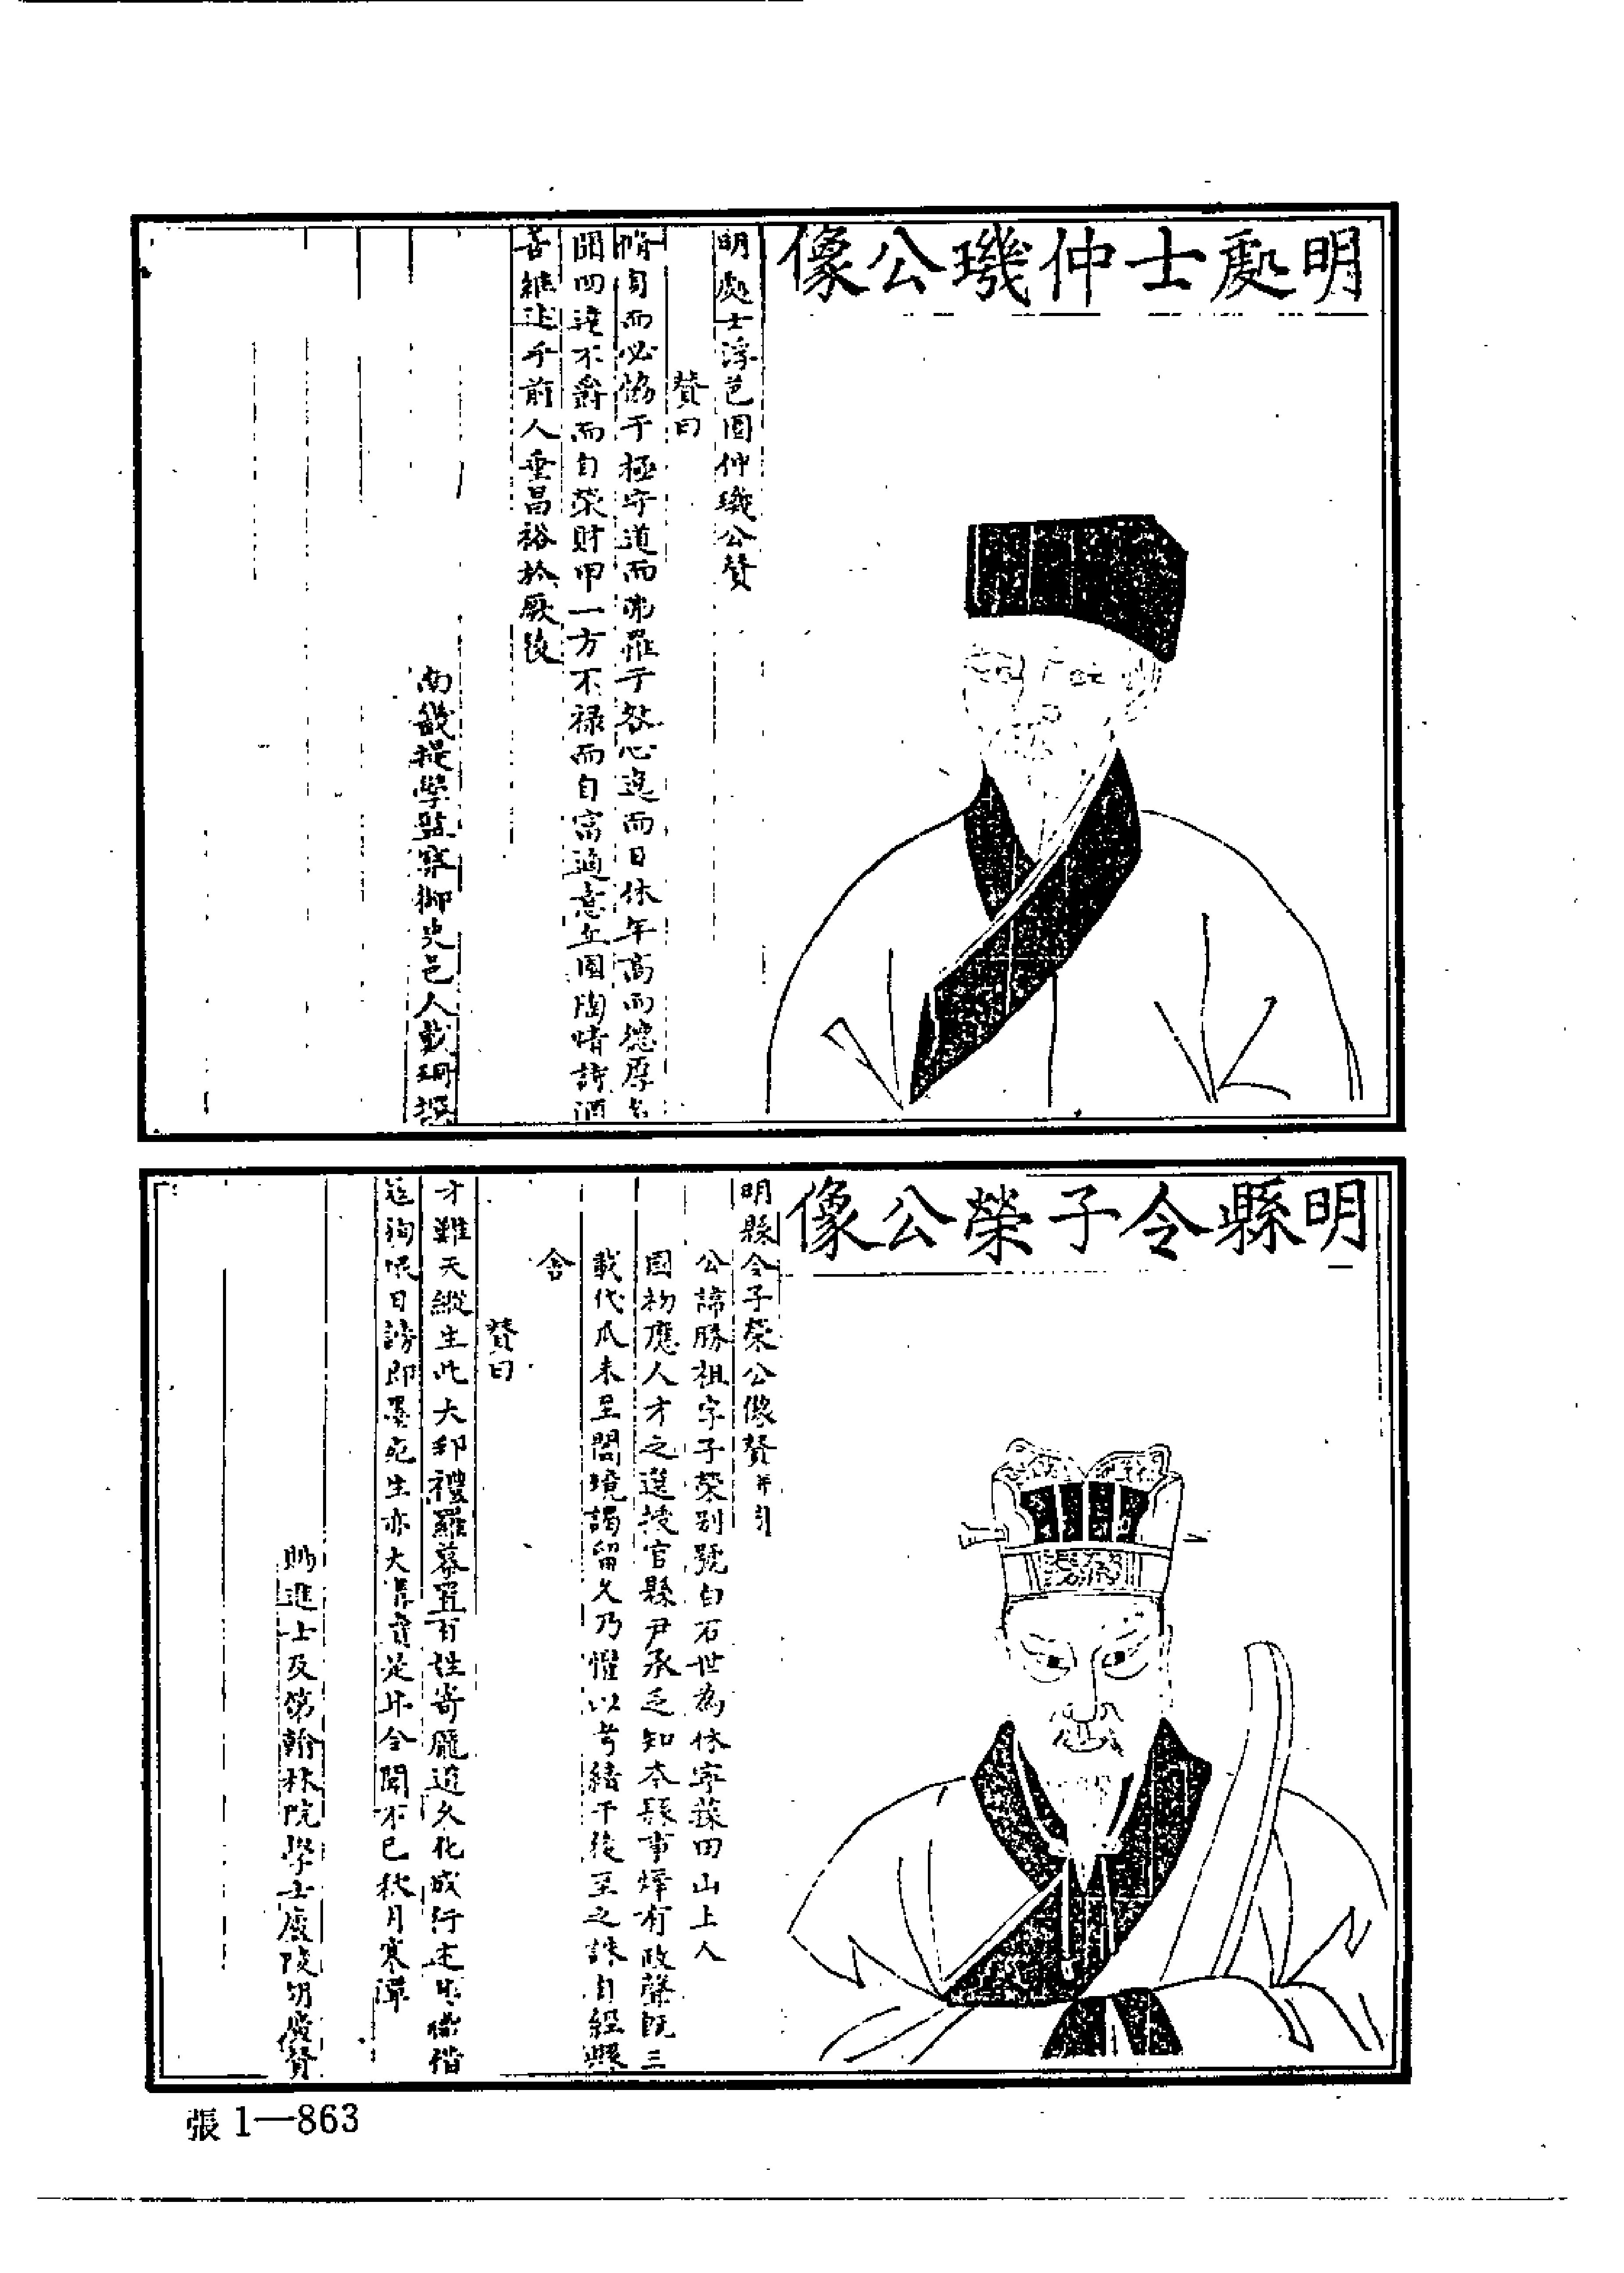 明處士仲璣公像
明處士浮邑園仲璣公贊
贊曰
脩身而必協于極守道而弗罹于咎心逸而日休年高而德厚名
聞四達不爵而自榮財甲一方不祿而自富適意丘園陶情詩酒
善繼迹乎前人垂昌裕於厥後
南畿提學監察御史邑人戴珊撰
明縣令子榮公像
明縣令子榮公像贊并引
公諱勝祖字子榮別號白石世為休寧蓀田山上人
國初應人才之選授官縣尹承乏知本縣事燁有政聲旣三
載代瓜未至闔境謁留久乃懼以考績干後至之誅自經縣
舍
贊曰
才難天縱生此大邦禮羅幕置百姓寄龐道久化成行走借
徇民日謗即墨宛生亦大是年令聞不已秋月寒潭
賜進士及第翰林院學士廬陵胡廣贊
張1—863